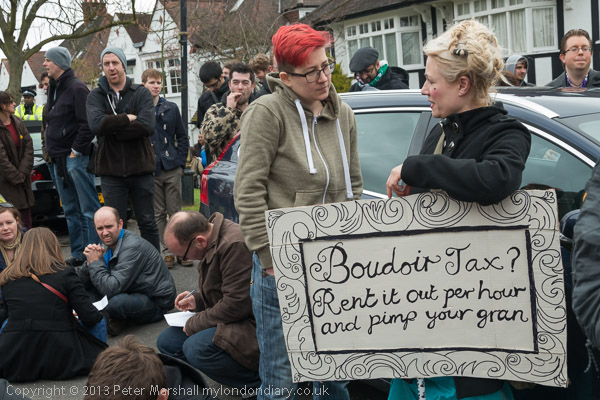 Boudoir Tax?
Rent it out per hour
and pimp your gran
Copyright © 2013 Peter Marshall mylondondiary.co.uk